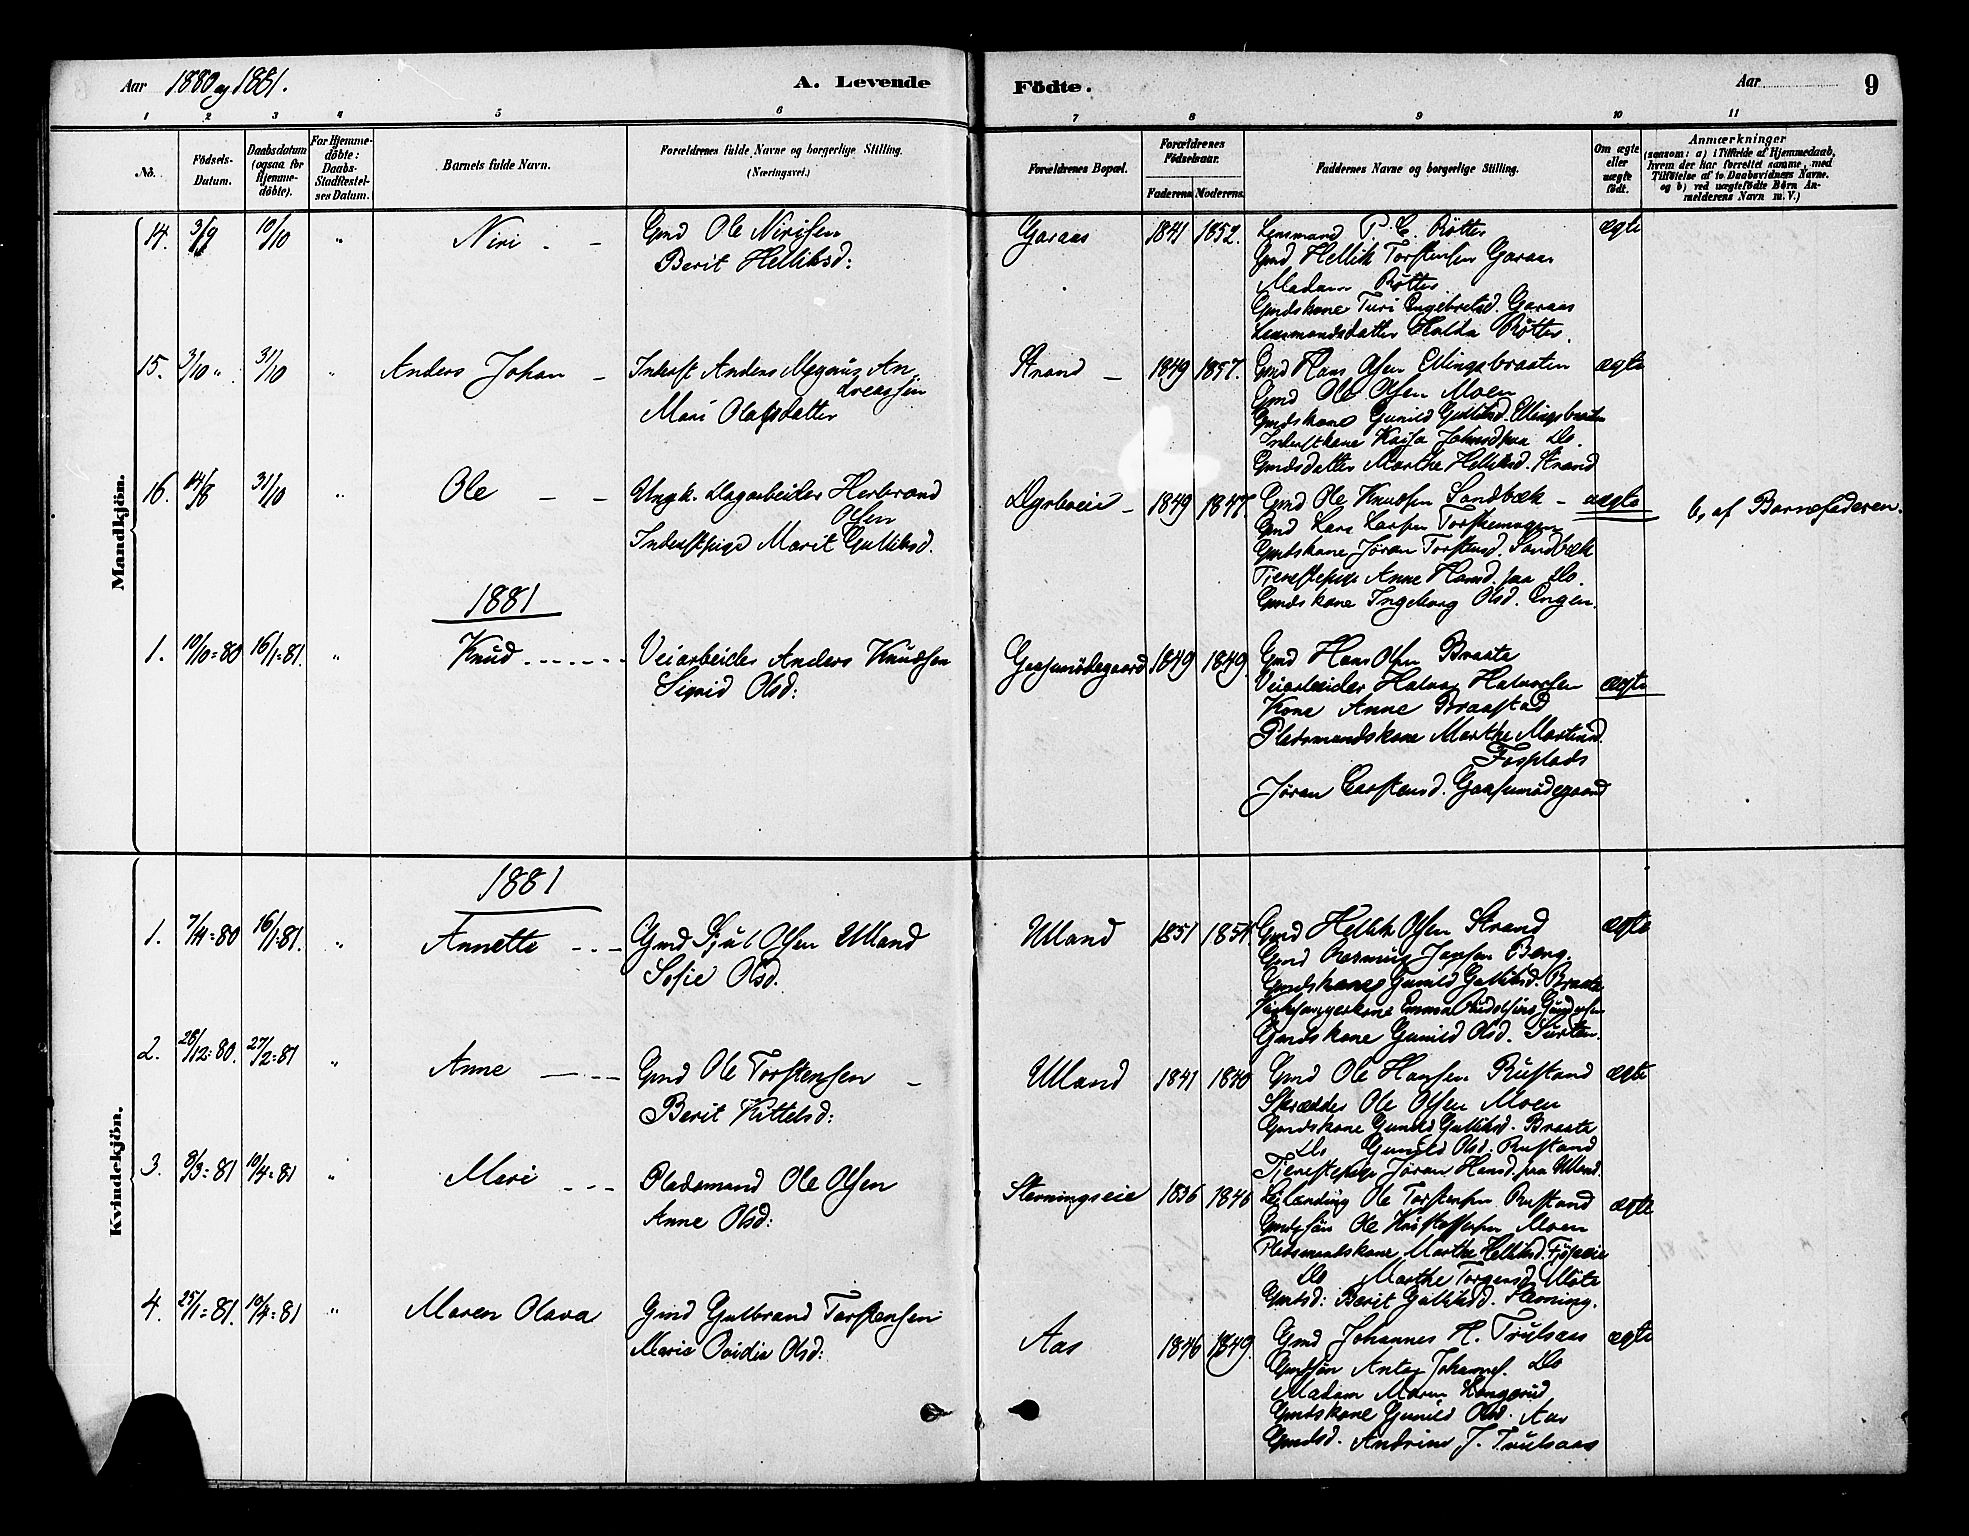 Aar 1880 og 1881.
A. Levende
Födte.
Aar
9
1 2 3 4 5 6 7 8 9 10 11
No.
Födsels-
Datum.
Daabsdatum
(ogsaa for
Hjemme-
döbte).
For Hjemme-
döbte:
Daabs-
Stadfæstel-
ses Datum.
Barnets fulde Navn.
Forældrenes fulde Navne og borgerlige Stilling.
(Næringsvei.)
Forældrenes Bopæl.
Forældrenes
Födselsaar.
Faderens. Moderens.
Faddernes Navne og borgerlige Stilling.
Om ægte
eller
uægte
födt.
Anmærkninger
(saasom: a) i Tilfælde af Hjemmedaab,
hvem der har forrettet samme, med
Tilföielse af to Daabsvidners Navne.
og b) ved uægtefödte Börn An-
melderens Navn m. V.)
Mandkjön.
14. 3/9 10/10 " Niri
Gmd Ole Nirisen
Berit Helliksd:
Garaas 1841 1852.
Lensmand P. C. Røtter
Gmd Hellik Torstensen Garaas
Madam Røtter
Gmdskone Turi Engebretsd. Garaas
Lensmandsdatter Hulda Røtter.
ægte
15. 3/10 " 31/10 " Anders Johan
Inderst Anders Magnus An-
dreassen
Mari Olafsdatter
Strand 1849 1857.
Gmd Hans Olsen Ellingsbraaten
Gmd Ole Olsen Moen
Gmdskone Gunild Gulliksd. Ellingsbraaten
Inderstkone Kajsa Johnsd paa Do.
Gmdsdatter Marthe Helliksd. Strand
ægte
16. 14/8 31/10 " Ole
Ungk. Dagarbeider Herbrand
Olsen
Inderstpige Marit Gulliksd.
Dyrboeie 1849 1847.
Gmd Ole Knudsen Sandbæk
Gmd Lars Larsen Torstenmogen
Gmdskone Jøran Torstensd. Sandbæk
Tjenestepige Anne Hansd. paa Do.
Gmdskone Ingeborg Olsd. Engen.
uægte
b, af Barnefaderen.
1881
1. 10/10=80 16/1=81. " Knud
Veiarbeider Anders Knudsen
Sigrid Olsd:
Gaasumödegaard 1849 1849.
Gmd Hans Olsen Braate
Veiarbeider Halvor Halvorsen
Kone Anne Braastad
Pladsmandskone Marthe Mortensd.
Fosplads
Jøran Carstensd. Gaasumödegaard
ægte
Kvindekjön.
1881
1. 7/4=80 16/1=81. " Annette
Gmd Sjul Olsen Ulland
Sofie Olsd.
Ulland 1851 1854
Gmd Hellik Olsen Strand
Gmd Rasmus Jensen Berg.
Gmdskone Gunild Gulliksd. Braate
Kirkesangerkone Emma Rudolfine Gundersen
Gmdskone Gunild Olsd. Surten.
ægte
2. 28/12=80. 27/2=81 " Anne
Gmd Ole Torstensen
Berit Kittelsd:
Ulland 1841 1840
Gmd Ole Hansen Rustand
Skrædder Ole Olsen Moen
Gmdskone Gunild Gulliksd. Braate
Do Gunild Olsd. Rustand
Tjenestepige Jøran Hansd. paa Ulland.
ægte
3. 8/3=81 10/4=81 " Mari
Pladsmand Ole Olsen
Anne Olsd:
Stærningseie 1836 1846
Leilending Ole Torstensen Rustand
Gmdssön Ole Kristoffersen Moen
Pladsmandskone Marthe Helliksd. Fjöseie
Do Marthe Torgersd.
Gmdsd: Berit Gulliksd.
ægte
4. 25/1=81. 10/4=81 " Maren Olava
Gmd Gulbrand Torstensen
Marie Ovidia Olsd:
Aas 1846 1849.
Gmd Johannes H. Trulsaas
Gmdsön Anton Johannes. Do
Madam Maren Langerud
Gmdskone Gunild Olsd. Aas
Gmdsd. Andrine J. Trulsaas
ægte